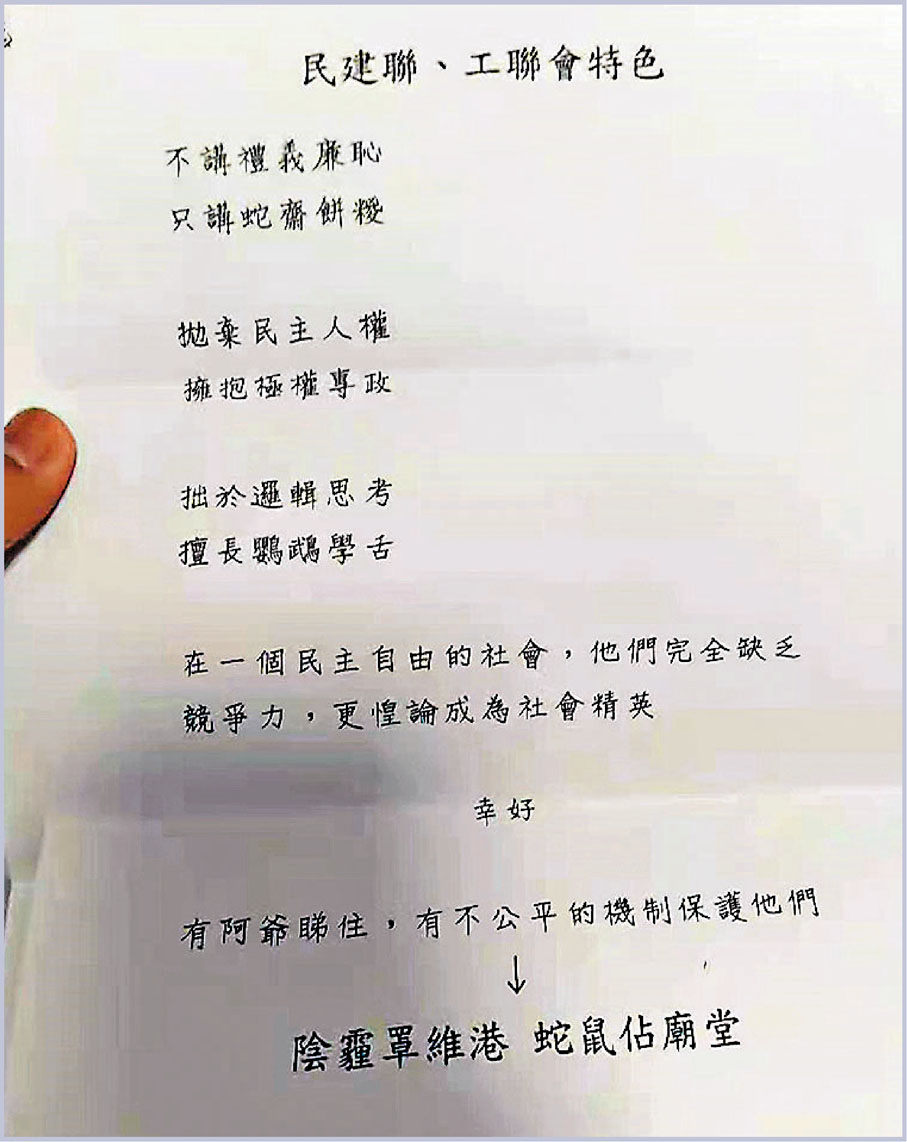 民建聯、工聯會特色
不講禮義廉恥
只講蛇齋餅糉
拋棄民主人權
擁抱極權專政
拙於邏輯思考
擅長鸚鵡學舌
在一個民主自由的社會，他們完全缺乏
競爭力，更惶論成為社會精英
幸好
有阿爺睇住，有不公平的機制保護他們
↓
陰霾罩維港 蛇鼠佔廟堂